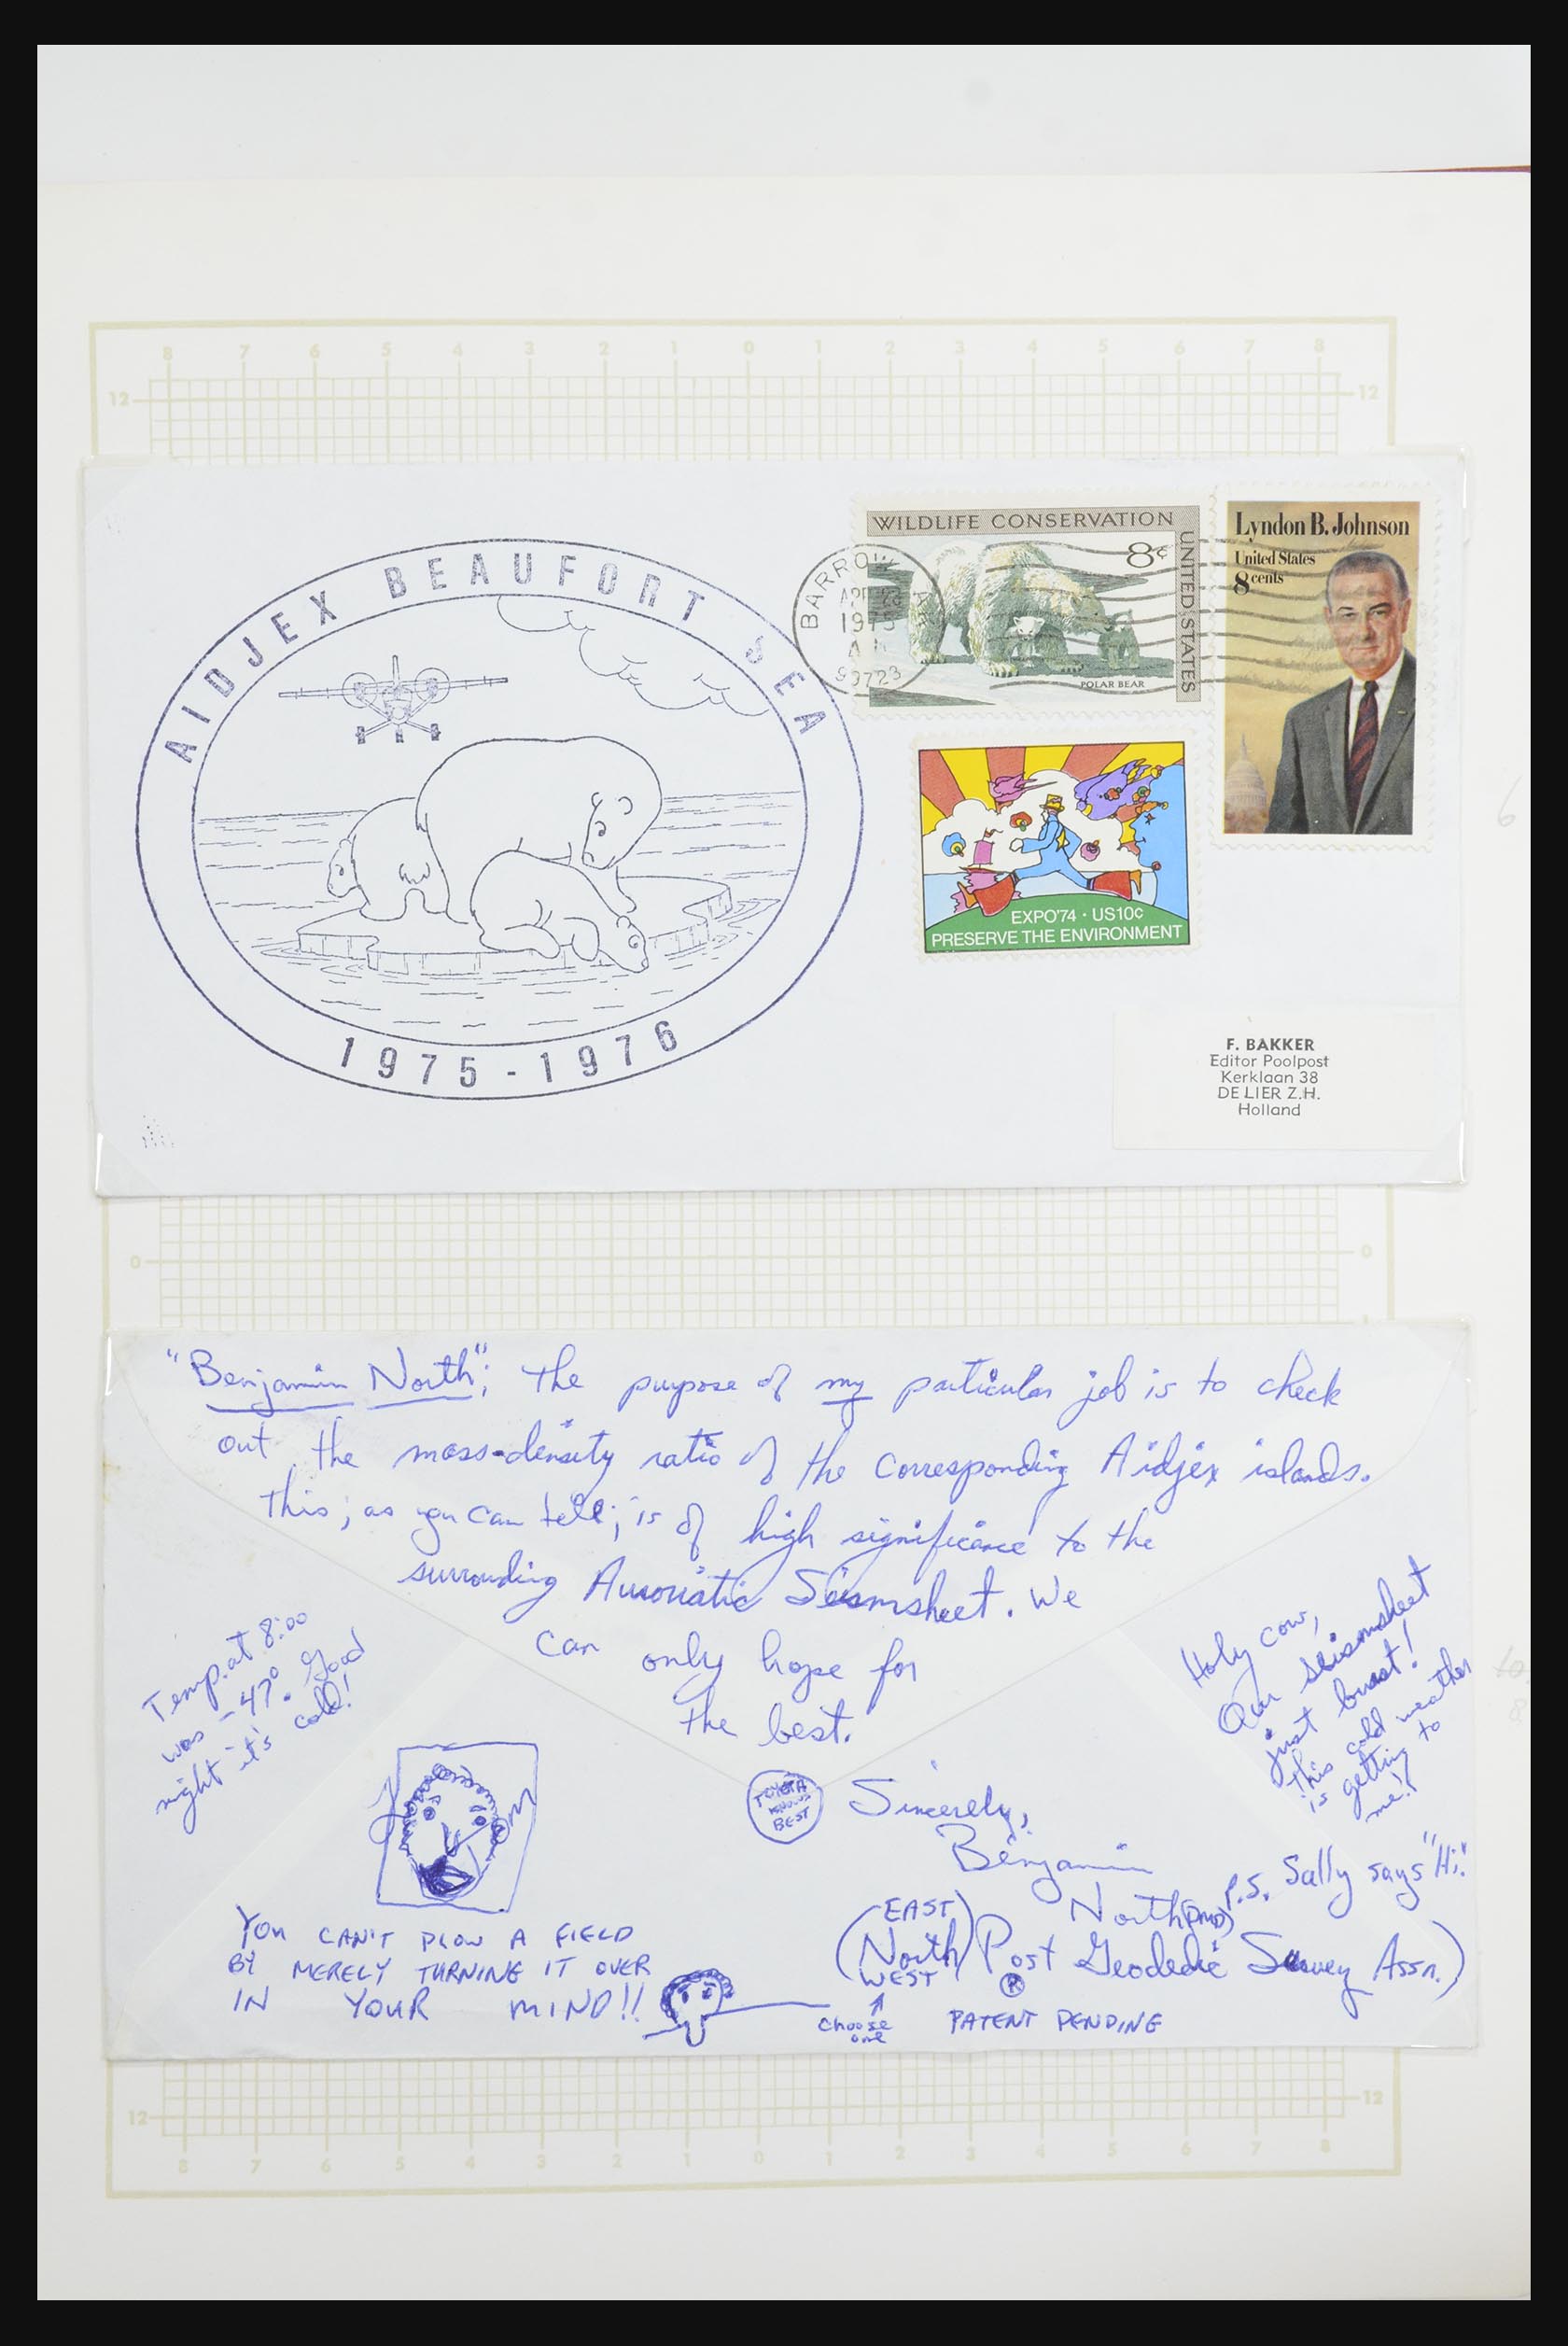 8 7 6 5 4 3 2 1 0 1 2 3 4 5 6 7 8
12 12
AIDJEX BEAUFORT SEA
1975-1976
BARROW
APR
1975
99723
WILDLIFE CONSERVATION
8¢
UNITED STATES
POLAR BEAR
Lyndon B. Johnson
United States
8 cents
EXPO'74 · US10c
PRESERVE THE ENVIRONMENT
F. BAKKER
Editor Poolpost
Kerklaan 38
DE LIER Z.H.
Holland
6
0 0
"Benjamin North"; The purpose of my particular job is to check
out the mass-density ratio of the corresponding Aidjex islands.
This; as you can tell; is of high significance to the
surrounding Seismsheet. We
can only hope for
the best.
Temp. at 8:00
was -47°. Good
night it's cold!
Holy cow,
Our seismsheet
just burst!
This cold weather
is getting to
me!!
TOYOTA
KNOWS
BEST
Sincerely,
Benjamin
North
P.S. Sally says "Hi."
YOU CAN'T PLOW A FIELD
BY MERELY TURNING IT OVER
IN YOUR MIND!!
(EAST)
(North) Post Geodedic Survey Assn.)
WEST ®
Choose
one
PATENT PENDING
12 12
8 7 6 5 4 3 2 1 0 1 2 3 4 5 6 7 8